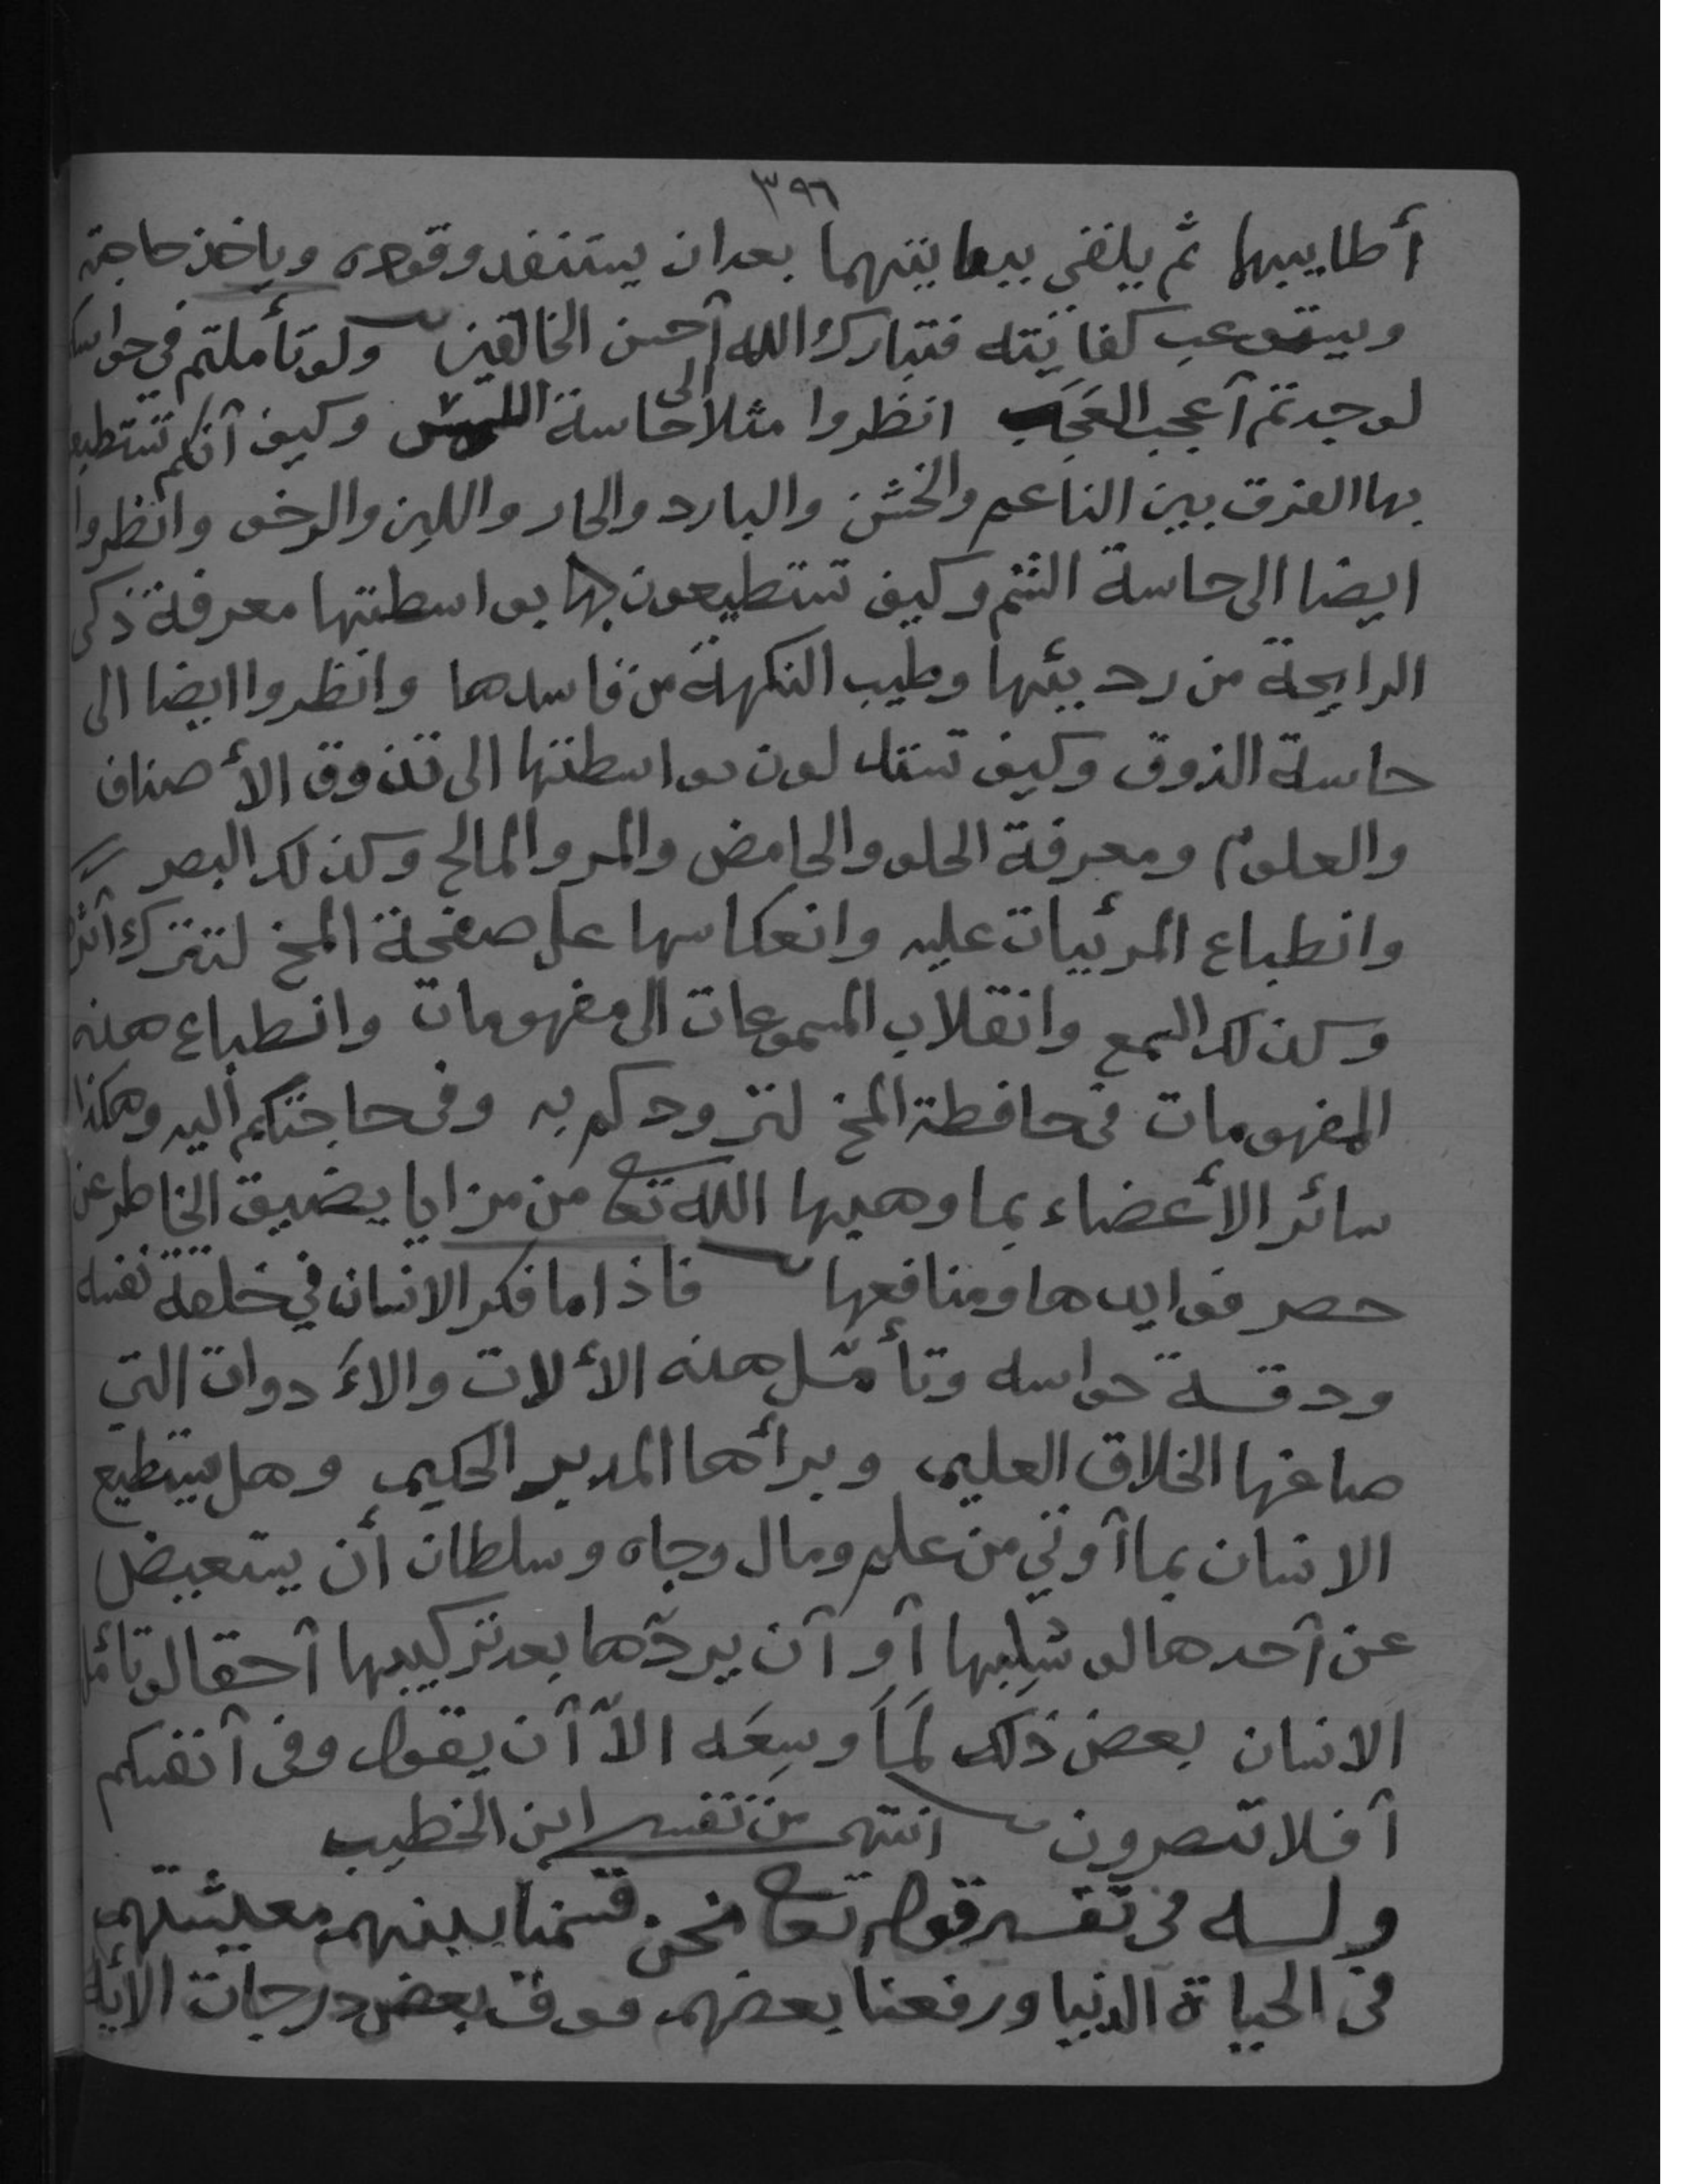 ٣٩٦
أطايبها ثم يلقى ببقايتهما بعد ان يستنفد وقوده وياخذ حاجته
ويستوعب كفايته فتبارك الله أحسن الخالقين ولو تأملتم في حواسكم
لوجدتم أعجب العجب انظروا مثلا الى حاسة اللمس وكيف أنكم تستطيعون
بها الفرق بين الناعم والخشن والبارد والحار واللين والرخو وانظروا
ايضا الى حاسة الشم وكيف تستطيعون بها بواسطتها معرفة ذكي
الرايحة من رديئها وطيب النكهة من فاسدها وانظروا ايضا الى
حاسة الذوق وكيف تستدلون بواسطتها الى تذوق الأصناف
والعلوم ومعرفة الحلو والحامض والمر والمالح وكذلك البصر
وانطباع المرئيات عليه وانعكاسها على صفحة المخ لتترك أثرها
وكذلك السمع وانقلاب المسموعات الى مفهومات وانطباع هذه
المفهومات في حافظة المخ لتزودكم به وفى حاجتكم اليه وهكذا
سائر الأعضاء بما وهبها الله تعا من مزايا يضيق الخاطر عن
حصر فوايدها ومنافعها فاذا ما فكر الانسان في خلقة نفسه
ودقـة حواسه وتأمّل هذه الألات والأدوات التي
صاغها الخلاق العليم وبرأها المدبر الحكيم وهل يستطيع
الانسان بما أوتي من علم ومال وجاه وسلطان أن يستعيض
عن أحدها لو سُلِبها أو أن يردّها بعد تركيبها أحقا لو تأمل
الانسان بعض ذلك لَمَا وسِعَه الاّ أن يقول وفى أنفسكم
أفلا تبصرون انتهى من تفسير ابن الخطيب
ولـه فى تفسير قوله تعا نحن قسمنا بينهم معيشتهم
فى الحياة الدنيا ورفعنا بعضهم فوق بعض درجات الأية